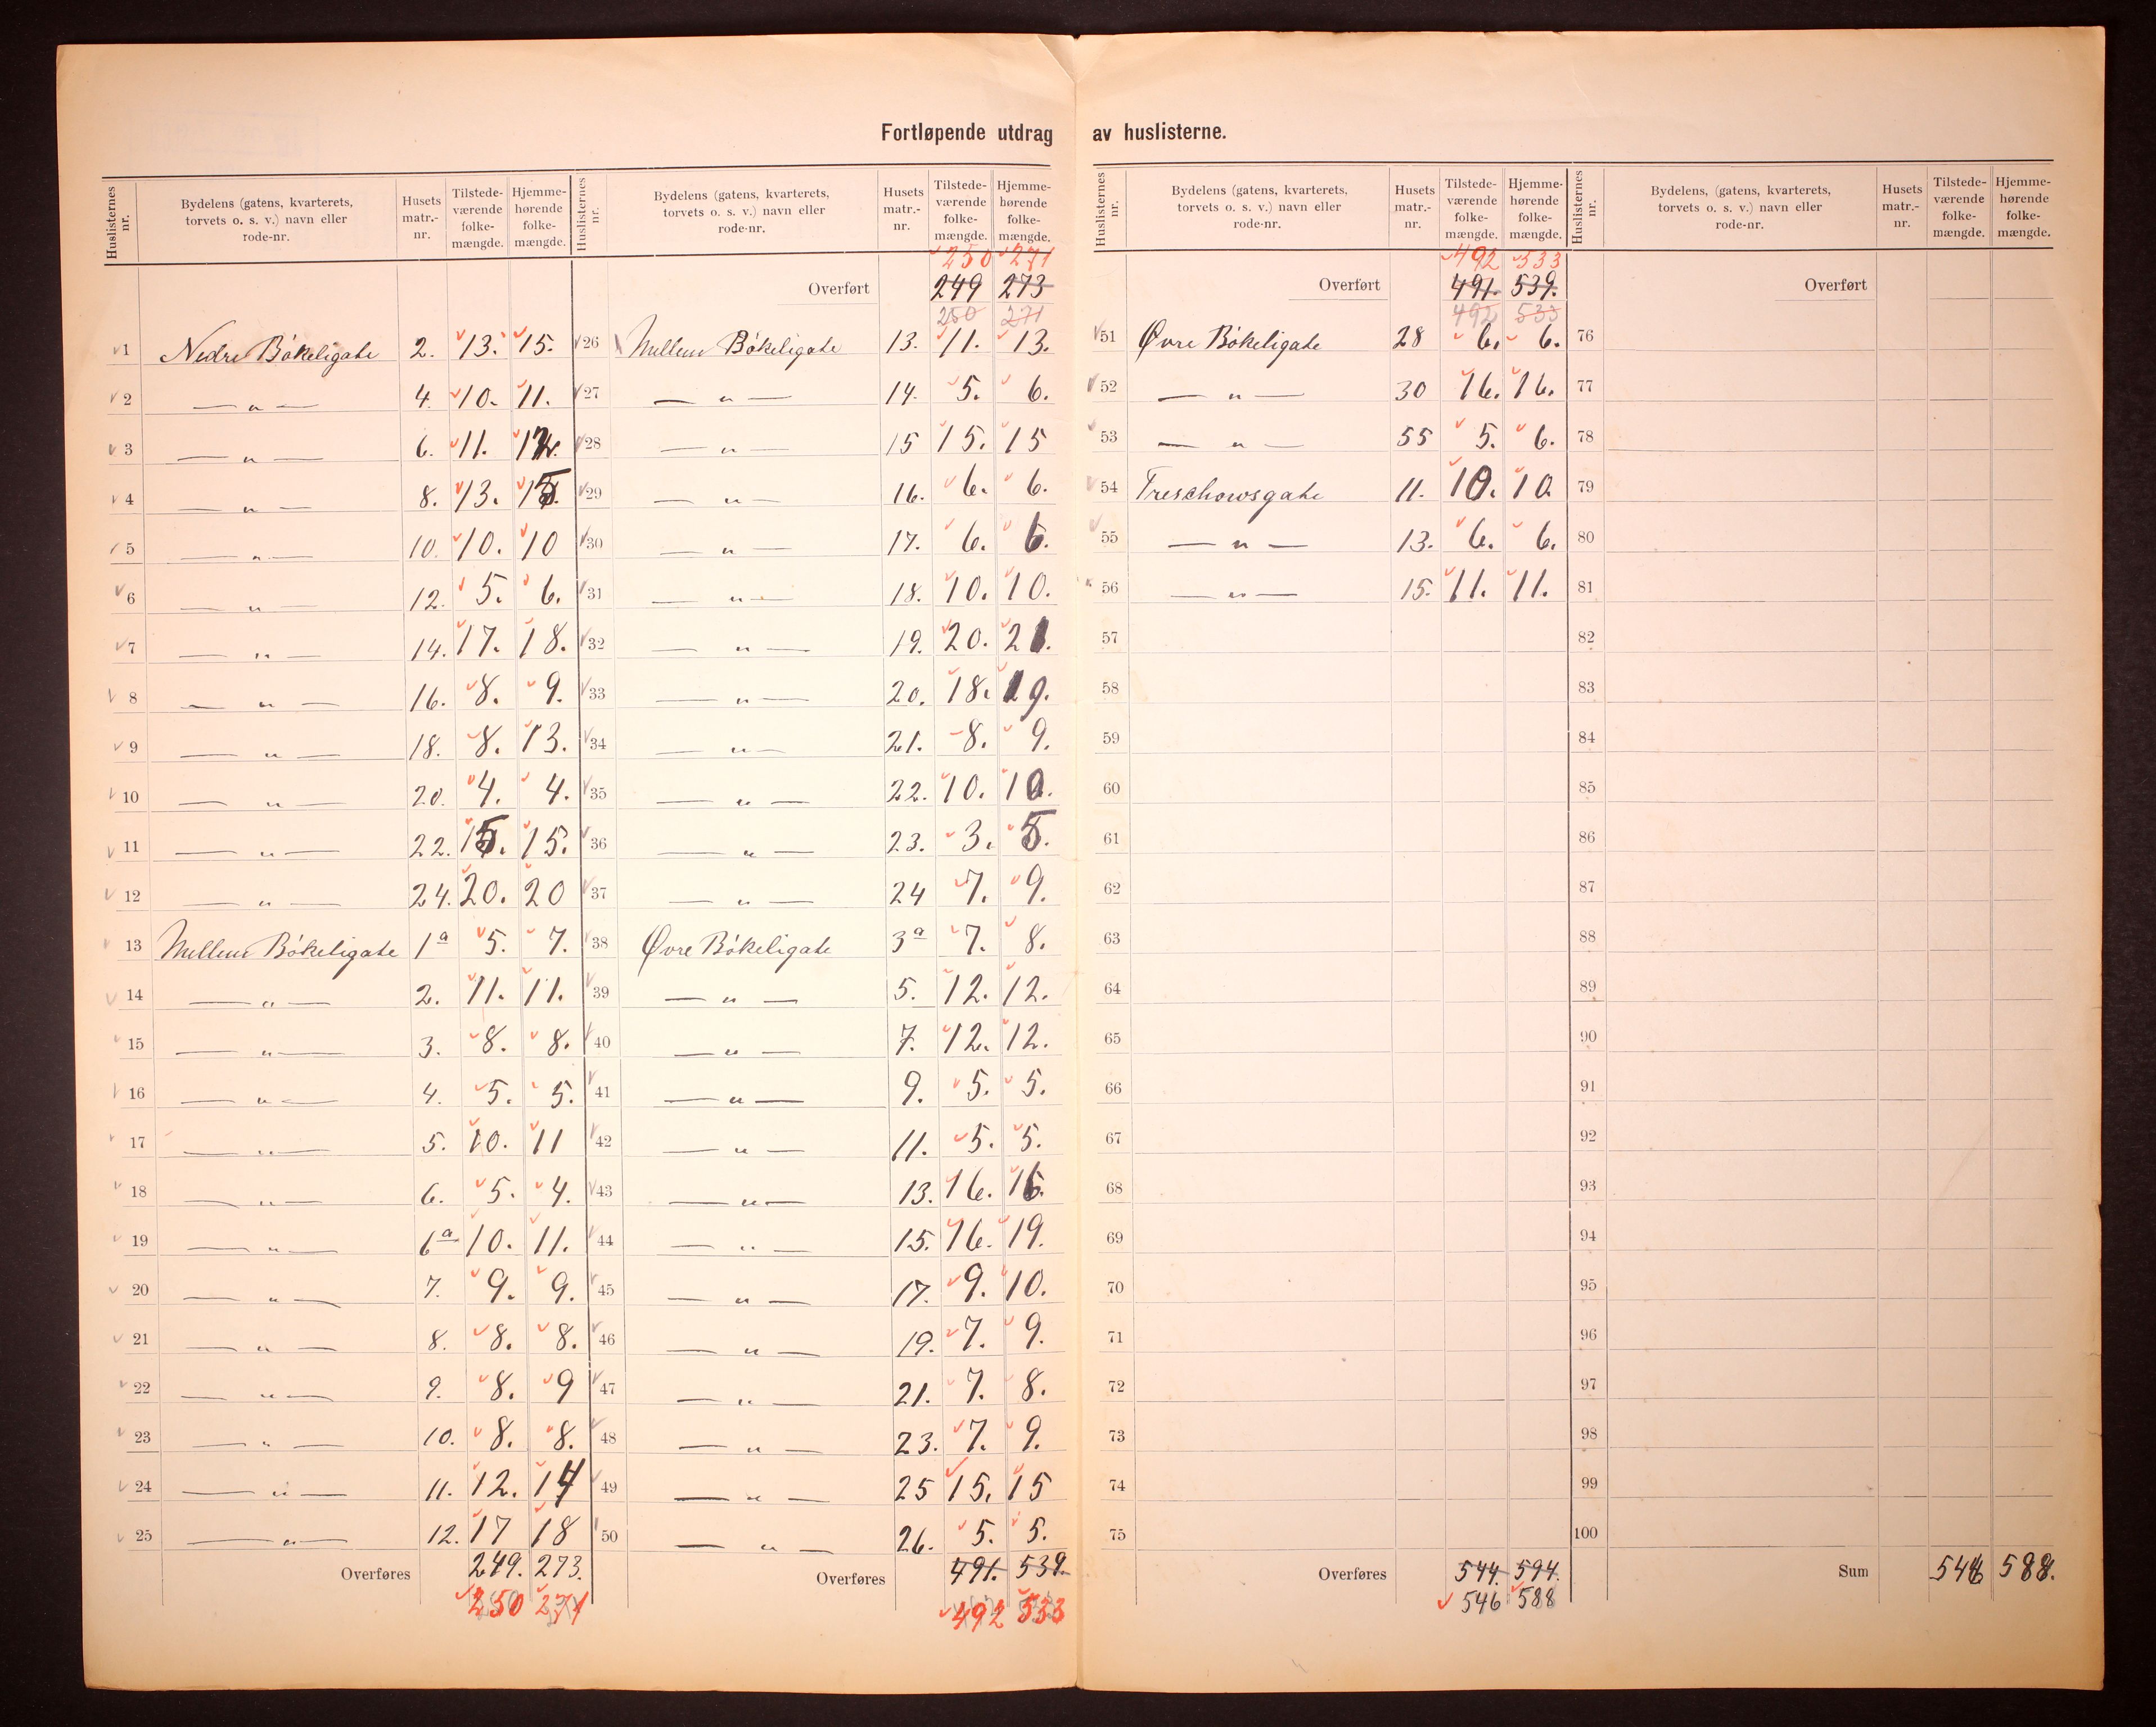 Fortløpende utdrag av huslisterne.
Huslisternes nr. | Bydelens (gatens, kvarterets, torvets o. s. v.) navn eller rode-nr. | Husets matr.-nr. | Tilstede-værende folke-mængde. | Hjemme-hørende folke-mængde.
1 Nedre Bøkeligate 2. 13. 15.
2 — „ — 4. 10. 11.
3 — „ — 6. 11.
4 — „ — 8. 13. 15.
5 — „ — 10. 10. 10
6 — „ — 12. 5. 6.
7 — „ — 14. 17. 18.
8 — „ — 16. 8. 9.
9 — „ — 18. 8. 13.
10 — „ — 20. 4. 4.
11 — „ — 22. 15. 15.
12 — „ — 24. 20. 20
13 Mellem Bøkeligate 1a 5. 7.
14 — „ — 2. 11. 11.
15 — „ — 3. 8. 8.
16 — „ — 4. 5. 5.
17 — „ — 5. 10. 11
18 — „ — 6. 5. 4.
19 — „ — 6a 10. 11.
20 — „ — 7. 9. 9.
21 — „ — 8. 8. 8.
22 — „ — 9. 8. 9
23 — „ — 10. 8. 8.
24 — „ — 11. 12. 14
25 — „ — 12. 17 18
Overføres 249. 273.
250 271
Huslisternes nr. | Bydelens (gatens, kvarterets, torvets o. s. v.) navn eller rode-nr. | Husets matr.-nr. | Tilstede-værende folke-mængde. | Hjemme-hørende folke-mængde.
250 271
Overført 249 273
250 271
26 Mellem Bøkeligate 13. 11. 13.
27 — „ — 14. 5. 6.
28 — „ — 15 15. 15
29 — „ — 16. 6. 6.
30 — „ — 17. 6. 6.
31 — „ — 18. 10. 10.
32 — „ — 19. 20. 21.
33 — „ — 20. 18. 19.
34 — „ — 21. 8. 9.
35 — „ — 22. 10. 10.
36 — „ — 23. 3. 5.
37 — „ — 24 7. 9.
38 Øvre Bøkeligate 3a 7. 8.
39 — „ — 5. 12. 12.
40 — „ — 7. 12. 12.
41 — „ — 9. 5. 5.
42 — „ — 11. 5. 5.
43 — „ — 13. 16. 16.
44 — „ — 15. 16. 19.
45 — „ — 17. 9. 10.
46 — „ — 19. 7. 9.
47 — „ — 21. 7. 8.
48 — „ — 23. 7. 9.
49 — „ — 25 15. 15
50 — „ — 26. 5. 5.
Overføres 491. 539.
492 533
Huslisternes nr. | Bydelens (gatens, kvarterets, torvets o. s. v.) navn eller rode-nr. | Husets matr.-nr. | Tilstede-værende folke-mængde. | Hjemme-hørende folke-mængde.
492 533
Overført 491. 539.
492 533
51 Øvre Bøkeligate 28 6. 6.
52 — „ — 30 16. 16.
53 — „ — 55 5. 6.
54 Treschowsgate 11. 10. 10
55 — „ — 13. 6. 6.
56 — „ — 15. 11. 11.
57
58
59
60
61
62
63
64
65
66
67
68
69
70
71
72
73
74
75
Overføres 544. 594.
546 588
Huslisternes nr. | Bydelens, (gatens, kvarterets, torvets o. s. v.) navn eller rode-nr. | Husets matr.-nr. | Tilstede-værende folke-mængde. | Hjemme-hørende folke-mængde.
Overført
76
77
78
79
80
81
82
83
84
85
86
87
88
89
90
91
92
93
94
95
96
97
98
99
100
Sum 546 588.